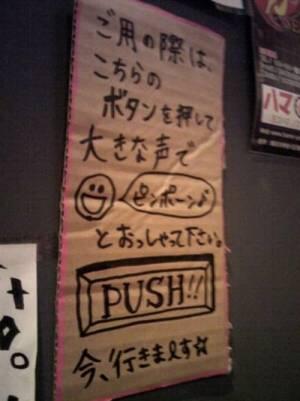 ご用の際は、
こちらの
ボタンを押して
大きな声で
ピンポーン♪
とおっしゃって下さい。
PUSH!!
今、行きます☆
ハマ